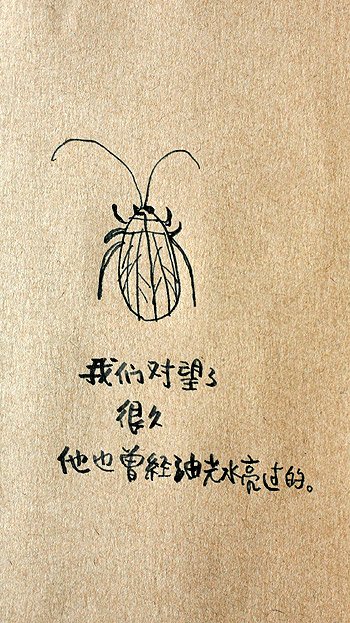 我们对望了
很久
他也曾经油光水亮过的。